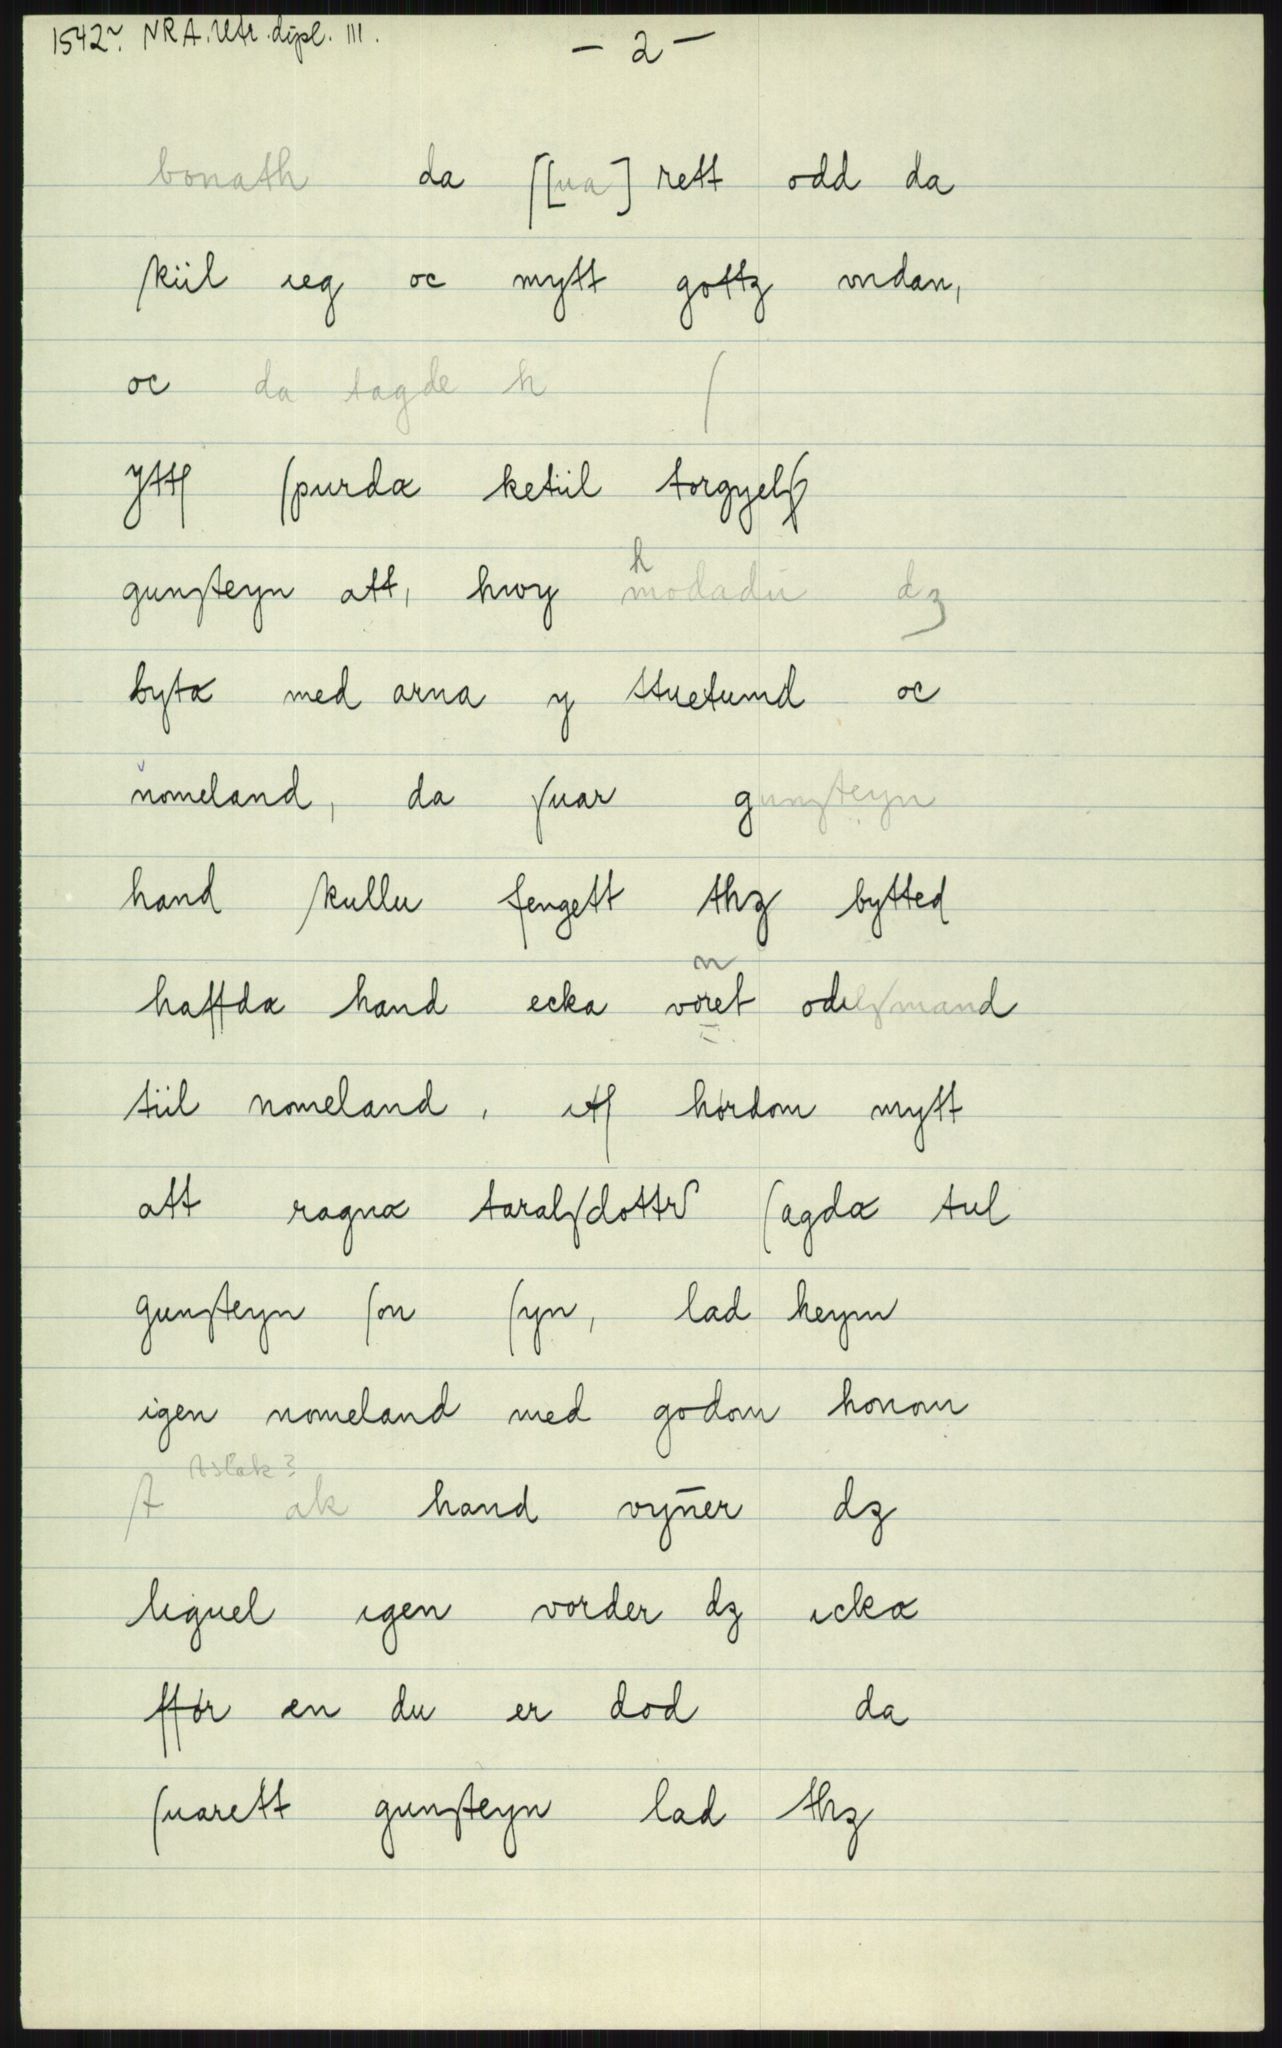 1542v. NRA. Utr. dipl. III.
- 2 -
bonath da ſ[ua] rett odd da
skiil ieg oc mytt gottz vndan,
oc da sagde h ſ
Jttſ ſpurdæ ketiil torgyelſ
gunſteyn att, hwy h modadu dz
bytæ med arna y stuetumd oc
nomeland, da ſuar gunſteyn
hand skullu fengett thz bytted
haffdæ hand ecka voret odelſmand
tiil nomeland, itſ hørdom mytt
att ragnæ taralſdottr ſagdæ tiil
gunſteyn ſon ſyn, lad heym
igen nomeland med godom honom
Aslak?
A ak hand vyn̄er dz
liguel igen vorder dz ickæ
ffør æn du er dod da
ſuarett gunſteyn lad thz